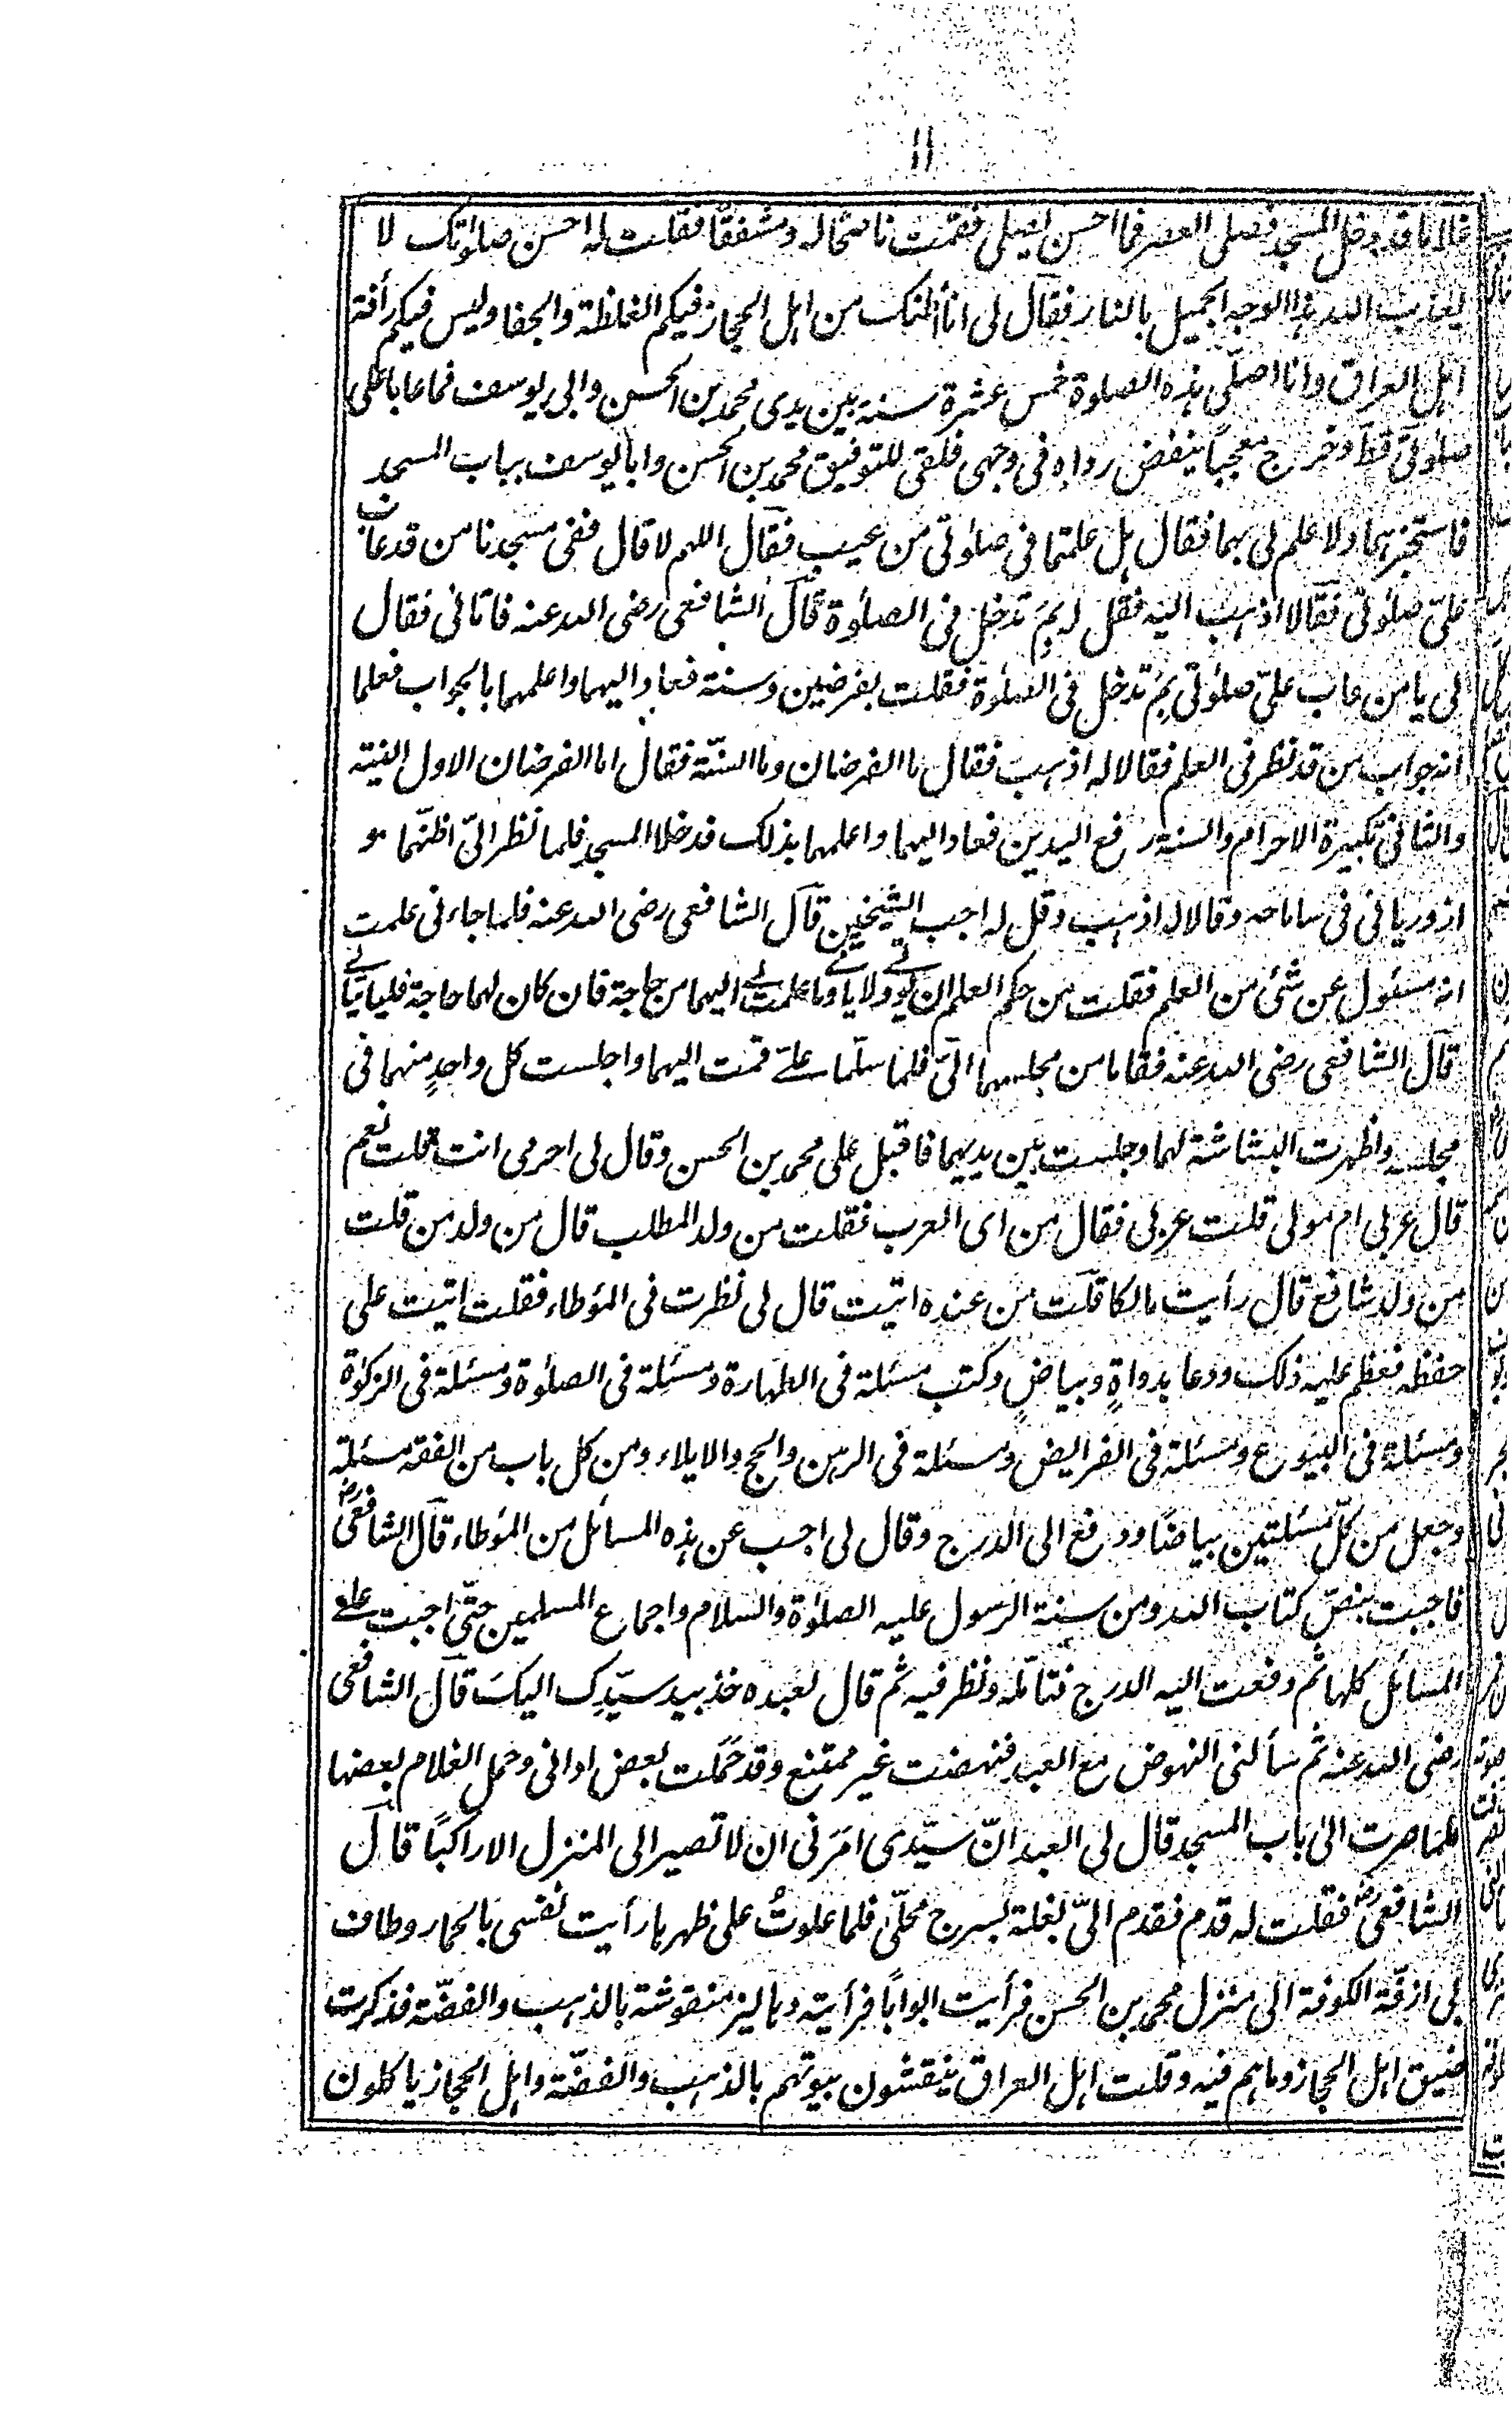 ۱۱
غلاما قد دخل المسجد فصلى العصر فما احسن يصلى فقمت ناصحا له ومشفقا فقلت له احسن صلوٰتك لا
يعذب الله هذا الوجه الجميل بالنار فقال لى انا اظنك من اهل الحجاز فيكم الغلظة والجفا وليس فيكم رأفة
اهل العراق وانا اصلّى هذه الصلوة خمس عشرة سنة بين يدى محمد بن الحسن وابى يوسف فما عابا على
صلوتى قط وخرج معجباً ينفض رداه فى وجهى فلقى للتوفيق محمد بن الحسن وابا يوسف بباب المسجد
فاستخبرتهما ولا علم لى بهما فقال هل علمتما فى صلوٰتى من عيب فقال اللهم لا قال ففى مسجدنا من قد عاب
علىّ صلوٰتى فقالا اذهب اليه فقل له بِمَ تدخل فى الصلوٰة قال الشافعى رضى الله عنه فاتانى فقال
لى يا من عاب علىّ صلوٰتى بِمَ تدخل فى الصلوٰة فقلت بفرضين وسنة فعاد اليهما واعلمهما بالجواب فعلما
انه جواب من قد نظر فى العلم فقالا له اذهب فقال ما الفرضان وما السنّة فقال اما الفرضان الاول النية
والثانى تكبيرة الاحرام والسنة رفع اليدين فعاد اليهما واعلمهما بذلك فدخلا المسجد فلما نظر الىّ اظنّهما
وقالا له اذهب وقل له اجب الشيخين قال الشافعى رضى الله عنه فلما جاءنى علمت
انه مسئول عن شئ من العلم فقلت من حكم العلم ان يؤتى ولا ياتى وما علمت لى اليهما من حاجة فان كان لهما حاجة فلياتيانى
قال الشافعى رضى الله عنه فقاما من مجلسهما الىّ فلما سلّما علىّ قمت اليهما واجلست كل واحدٍ منهما فى
مجلسه واظهرت البشاشة لهما وجلست بين يديهما فاقبل على محمد بن الحسن وقال لى احرمى انت قلت نعم
قال عربى ام مولى قلت عربى فقال من اى العرب فقلت من ولد المطلب قال من ولد من قلت
من ولد شافع قال رأيت مالكا قلت من عنده اتيت قال لى نظرت فى المؤطاء فقلت اتيت على
حفظه فعظم عليه ذلك ودعا بدواةٍ وبياضٍ وكتب مسئلة فى الطهارة ومسئلة فى الصلوٰة ومسئلة فى الزكوٰة
ومسئلة فى البيوع ومسئلة فى الفرايض ومسئلة فى الرهن والحج والايلاء ومن كل باب من الفقه مسئلة
وجعل من كلّ مسئلتين بياضًا ودفع الى الدرج وقال لى اجب عن هذه المسائل من المؤطاء قال الشافعىؓ
فاجبت بنصّ كتاب الله ومن سنة الرسول عليه الصلوٰة والسلام واجماع المسلمين حتّى اجبت على
المسائل كلها ثم دفعت اليه الدرج فتأمّله ونظر فيه ثم قال لعبده خذ بيد سيّدِك اليكَ قال الشافعى
رضى الله عنه ثم سألنى النهوض مع العبد فنهضت غير ممتنع وقد حَمَلت بعض ادائى وحمل الغلام بعضها
فلما صرت الى باب المسجد قال لى العبد انّ سيّدى امَرَنى ان لا تصير الى المنزل الا راكبًا قال
الشافعىؓ فقلت له قدم فقدم الىّ بغلة بسرج محلّى فلما علوتُ على ظهرها رأيت نفسى بالحمار وطاف
بى ازقّة الكوفة الى منزل محمد بن الحسن فرأيت ابوابًا فرأيته دهاليز منقوشة بالذهب والفضّة فذكرت
ضيق اهل الحجاز وما هم فيه وقلت اهل العراق ينقشون بيوتهم بالذهب والفضّة واهل الحجاز ياكلون